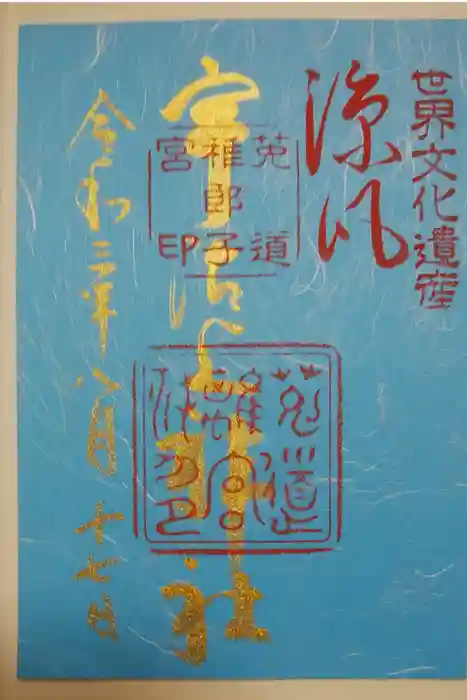 世界文化遺産
涼風
菟道
稚郎子
宮印
宇治上神社
菟道
離宮
令和三年八月十七日